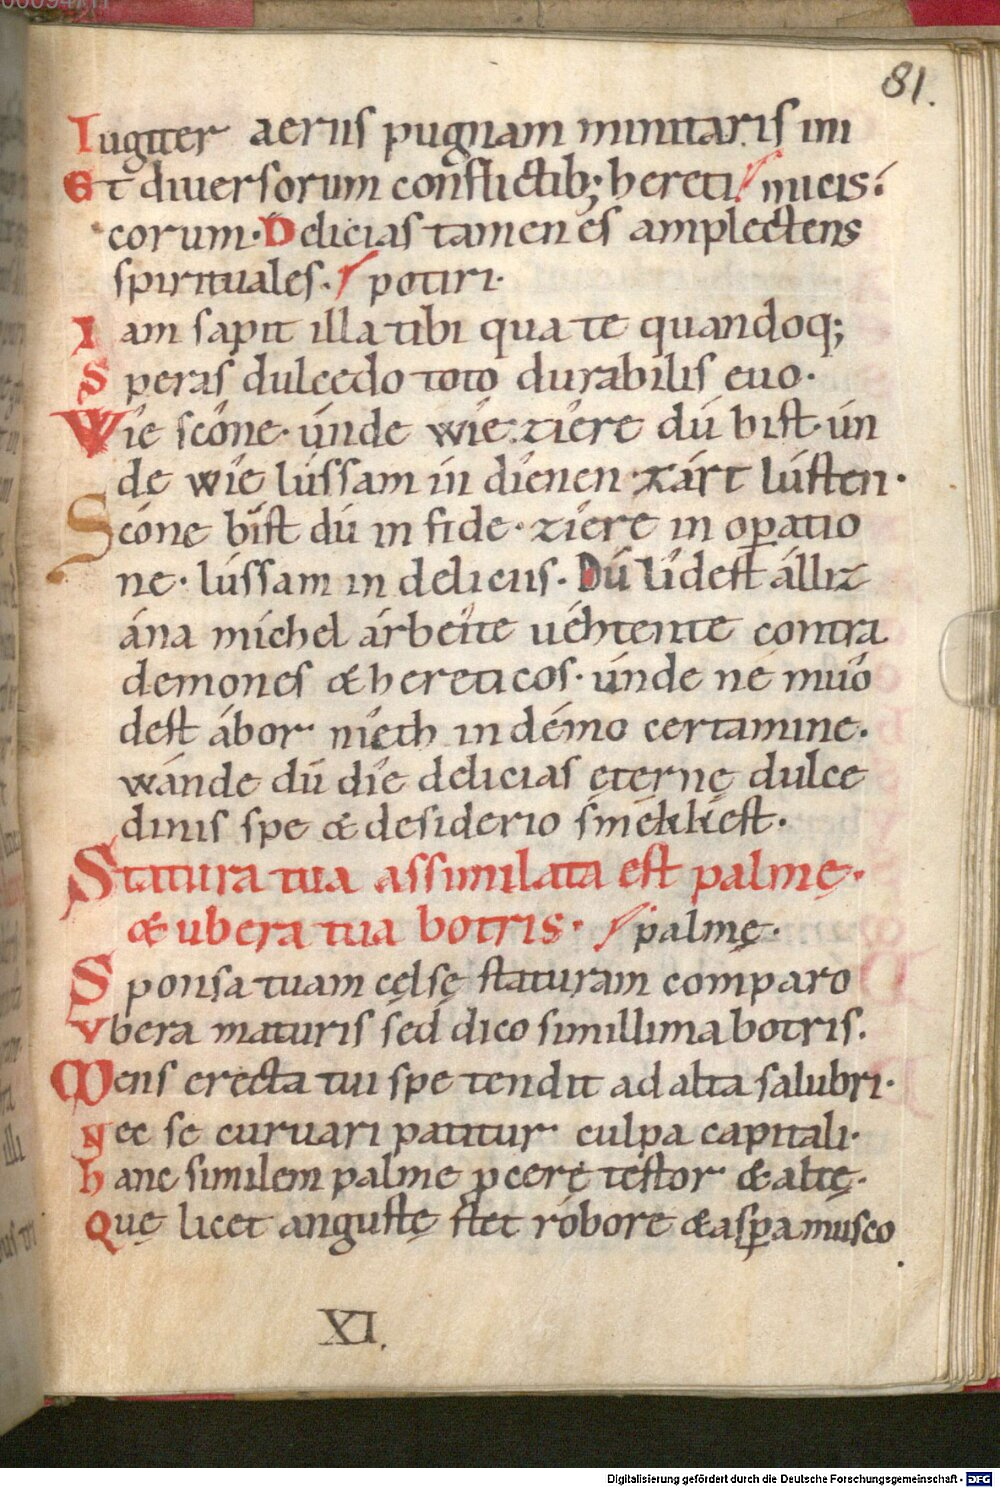 81.
Iugiter aeriis pugnam minitaris ini
Et diuersorum conflictib; hereti micis.
corum. Delicias tamen es amplectens
spirituales. potiri.
Iam sapit illa tibi qua te quandoq;
Speras dulcedo toto durabilis euo.
Wíe scóne. únde wíe. zíere dú bist. ún
de wíe lússam ín díenen zárt lústen.
Scóne bíst dú in fide. zíere in operatio
ne. lússam in deliciis. Dú lídest álliz
ána míchel árbeite uéhtente contra
demones & hereticos. únde ne múo
dest ábor níeth in démo certamine.
wánde dú díe delicias ęternę dulce
dinis spe & desiderio smékkest.
Statura tua assimilata est palmę.
& ubera tua botris. palmę.
Sponsa tuam cęlsę staturam comparo
Vbera maturis sed dico simillima botris.
Mens erecta tui spe tendit ad alta salubri.
Nec se curuari patitur culpa capitali.
hanc similem palme pcerę testor & altę.
Quę licet angustę stet róbore & aspera musco
XI.
Digitalisierung gefördert durch die Deutsche Forschungsgemeinschaft - DFG